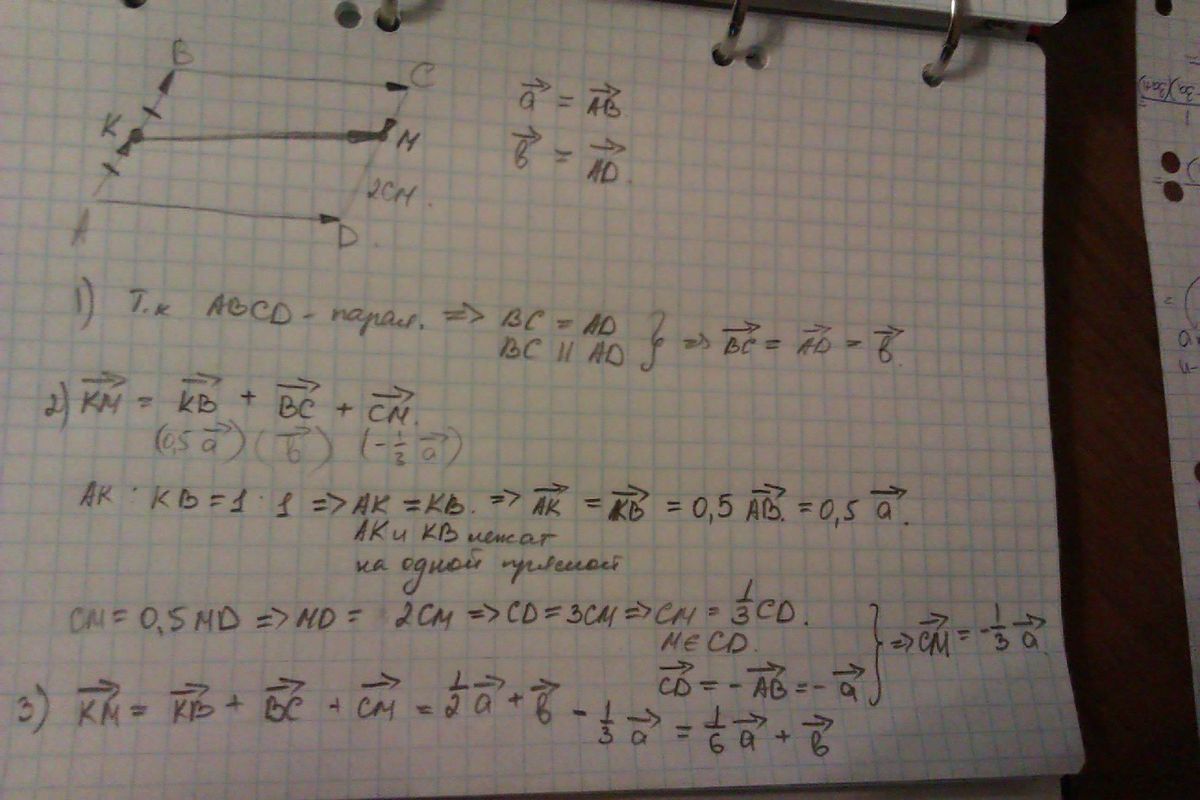 B
C
K
M
2CM.
A
D.
a⃗ = AB⃗
в⃗ = AD⃗.
1) Т.к ABCD - парал. => BC = AD
BC || AD } => BC⃗ = AD⃗ = в⃗.
2) KM⃗ = KB⃗ + BC⃗ + CM⃗.
(0,5 a⃗) (в⃗) (-1/3 a⃗)
AK : KB = 1 : 1 => AK = KB. => AK⃗ = KB⃗ = 0,5 AB⃗. = 0,5 a⃗.
AK и KB лежат
на одной прямой
CM = 0,5 MD => MD = 2CM => CD = 3CM => CM = 1/3 CD.
M∈CD.
CD⃗ = -AB⃗ = -a⃗ } => CM⃗ = -1/3 a⃗
3) KM⃗ = KB⃗ + BC⃗ + CM⃗ = 1/2 a⃗ + в⃗ - 1/3 a⃗ = 1/6 a⃗ + в⃗